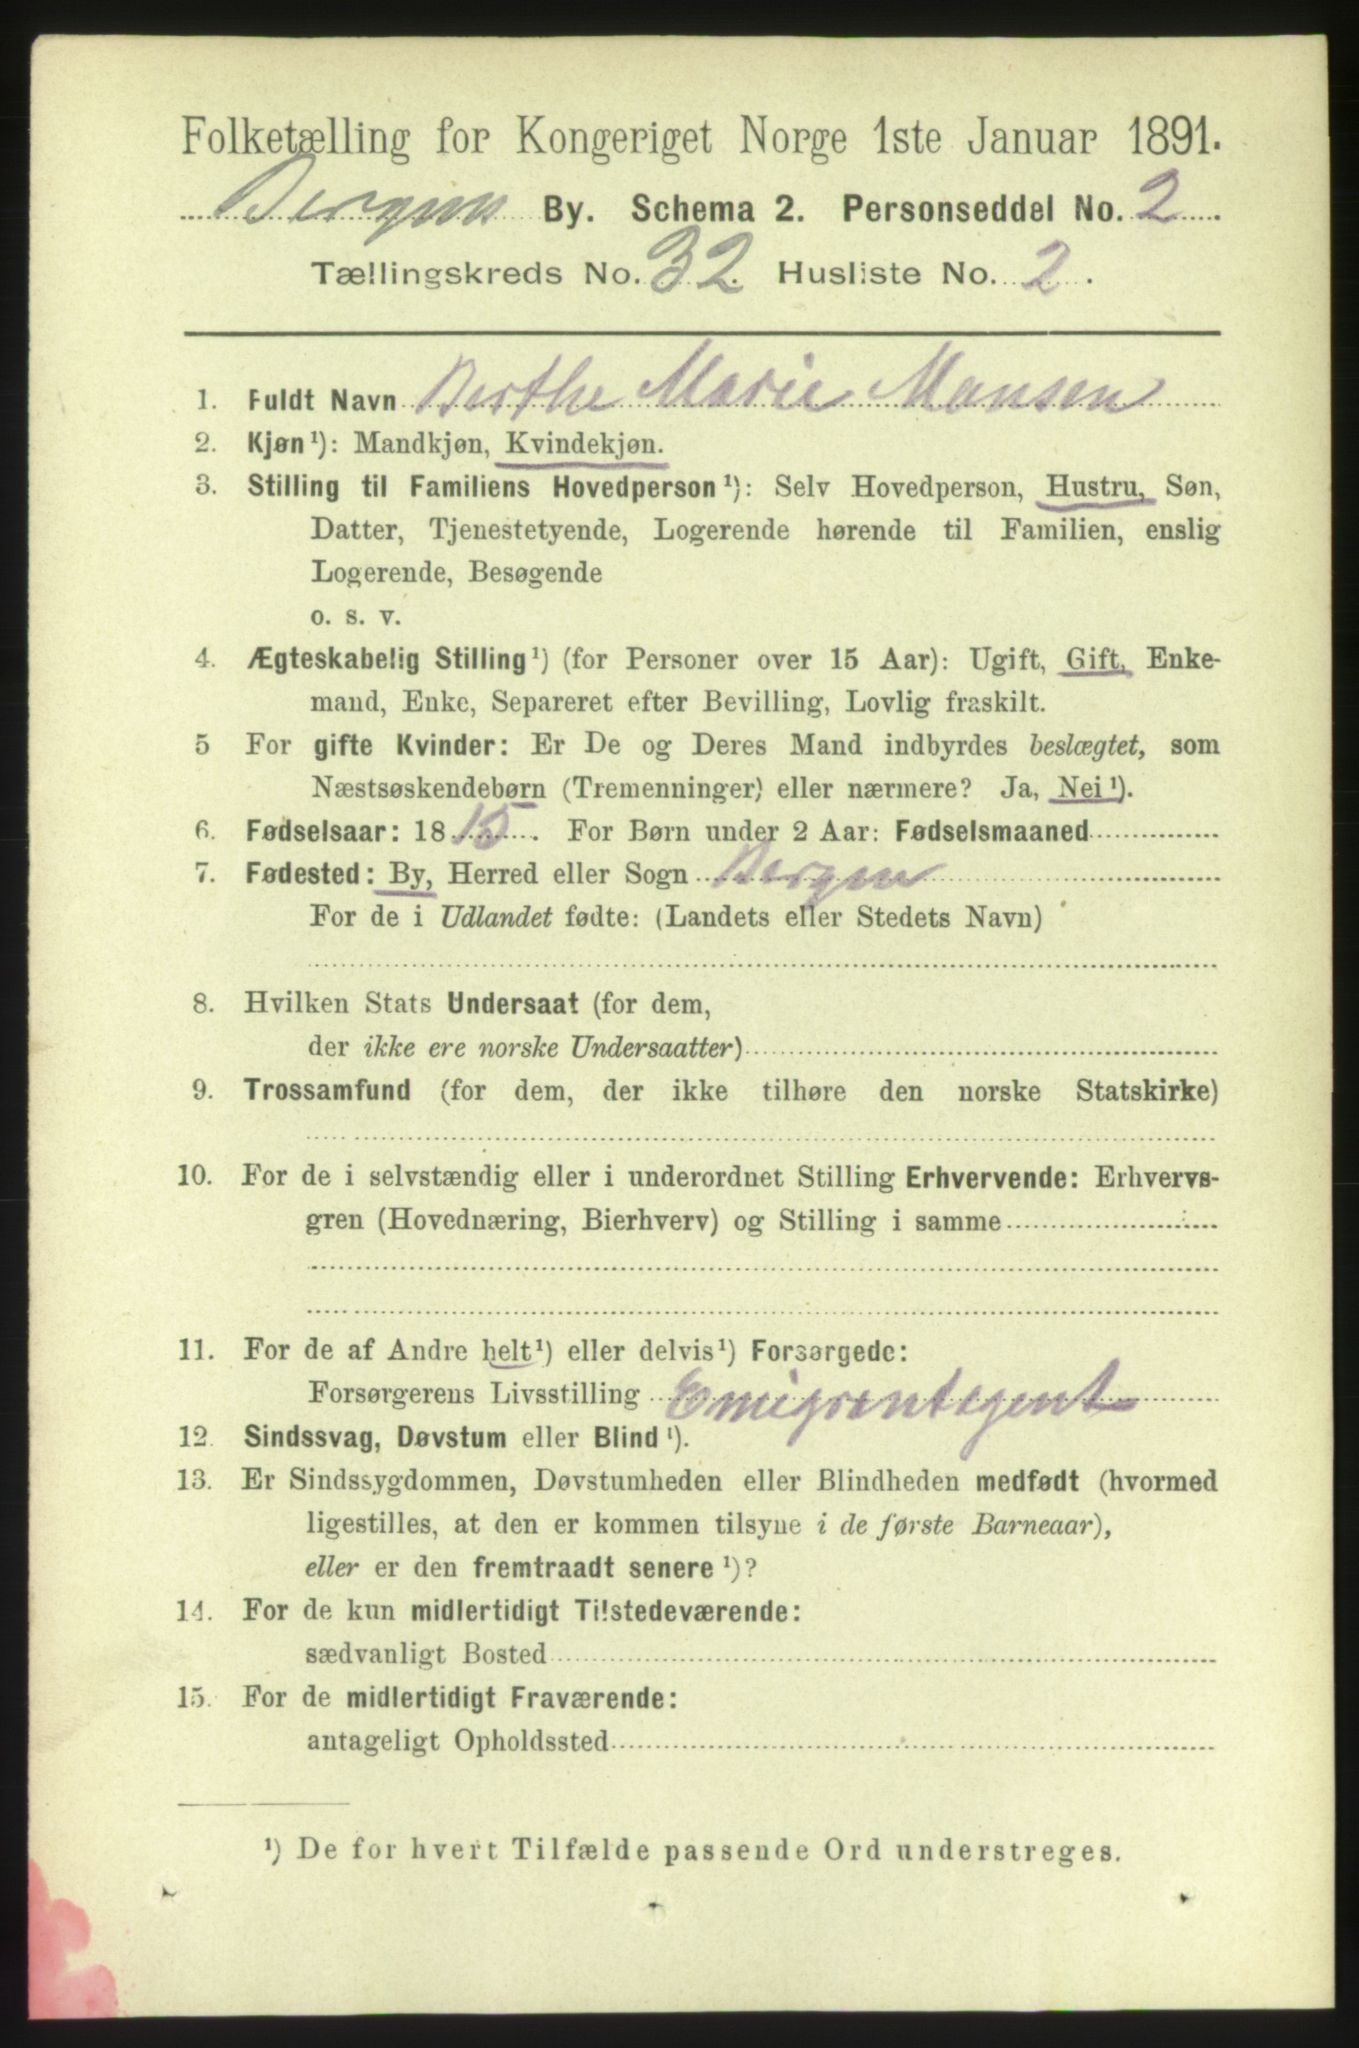 Folketælling for Kongeriget Norge 1ste Januar 1891.
Bergens By. Schema 2. Personseddel No. 2
Tællingskreds No. 32. Husliste No. 2.
1. Fuldt Navn Berthe Marie Monsen
2. Kjøn¹): Mandkjøn, Kvindekjøn.
3. Stilling til Familiens Hovedperson¹): Selv Hovedperson, Hustru, Søn,
Datter, Tjenestetyende, Logerende hørende til Familien, enslig
Logerende, Besøgende
o. s. v.
4. Ægteskabelig Stilling¹) (for Personer over 15 Aar): Ugift, Gift, Enke-
mand, Enke, Separeret efter Bevilling, Lovlig fraskilt.
5 For gifte Kvinder: Er De og Deres Mand indbyrdes beslægtet, som
Næstsøskendebørn (Tremenninger) eller nærmere? Ja, Nei¹).
6. Fødselsaar: 1815. For Børn under 2 Aar: Fødselsmaaned
7. Fødested: By, Herred eller Sogn Bergen
For de i Udlandet fødte: (Landets eller Stedets Navn)
8. Hvilken Stats Undersaat (for dem,
der ikke ere norske Undersaatter)
9. Trossamfund (for dem, der ikke tilhøre den norske Statskirke)
10. For de i selvstændig eller i underordnet Stilling Erhvervende: Erhvervs-
gren (Hovednæring, Bierhverv) og Stilling i samme
11. For de af Andre helt¹) eller delvis¹) Forsørgede:
Forsørgerens Livsstilling Emigrantagent
12. Sindssvag, Døvstum eller Blind¹).
13. Er Sindssygdommen, Døvstumheden eller Blindheden medfødt (hvormed
ligestilles, at den er kommen tilsyne i de første Barneaar),
eller er den fremtraadt senere¹)?
14. For de kun midlertidigt Tilstedeværende:
sædvanligt Bosted
15. For de midlertidigt Fraværende:
antageligt Opholdssted
¹) De for hvert Tilfælde passende Ord understreges.